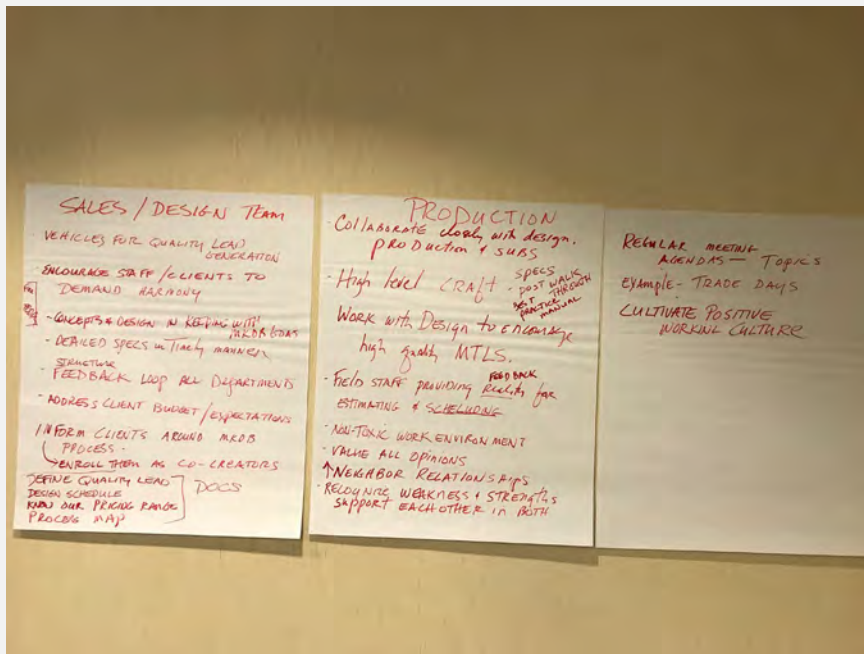 SALES / DESIGN TEAM
- VEHICLES FOR QUALITY LEAD
GENERATION
ENCOURAGE STAFF / CLIENTS TO
DEMAND HARMONY
- CONCEPTS & DESIGN IN KEEPING WITH
MKDB GOALS
- DETAILED SPECS in Timely manner
STRUCTURE
- FEEDBACK LOOP ALL DEPARTMENTS
- ADDRESS CLIENT BUDGET / EXPECTATIONS
INFORM CLIENTS AROUND MKDB
PROCESS -
ENROLL THEM AS CO-CREATORS
DEFINE QUALITY LEAD
DESIGN SCHEDULE
KNOW OUR PRICING RANGE
PROCESS MAP
DOCS
PRODUCTION
- Collaborate closely with design,
PRODuction & SUBS
- High level CRAFT
SPECS
- POST WALK
THROUGH
BEST
PRACTICE
MANUAL
Work with Design to encourage
high quality MTLS.
- Field STAFF PROVIDING Reality for
FEEDBACK
ESTIMATING & SCHELUDING
- NON-TOXIC WORK ENVIRONMENT
- VALUE ALL OPINIONS
↑ NEIGHBOR RELATIONSHIPS
- RECOGNIZE WEAKNESS & STRENGTHS
SUPPORT EACH OTHER IN BOTH
REGULAR MEETING
AGENDAS — Topics
EXAMPLE - TRADE DAYS
CULTIVATE POSITIVE
WORKING CULTURE